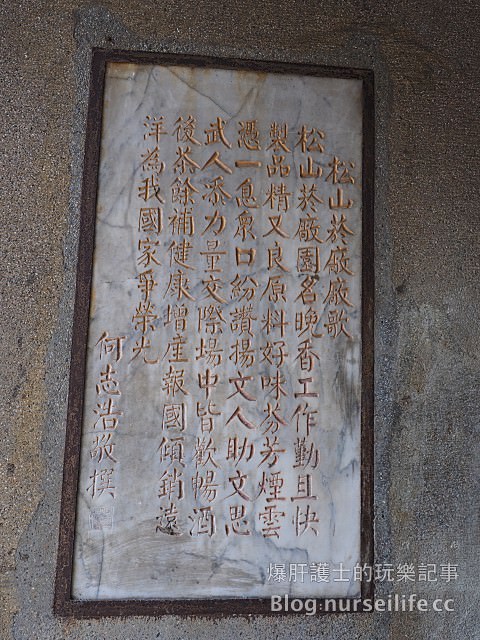 松山菸廠廠歌
松山菸廠園名晚香工作勤且快
製品精又良原料好味芬芳煙雲
憑一息眾口紛讚揚文人助文思
武人添力量交際場中皆歡暢酒
後茶餘補健康增產報國傾銷遠
洋為我國家爭榮光
何志浩敬撰
爆肝護士的玩樂記事
Blog:nurseilife.cc